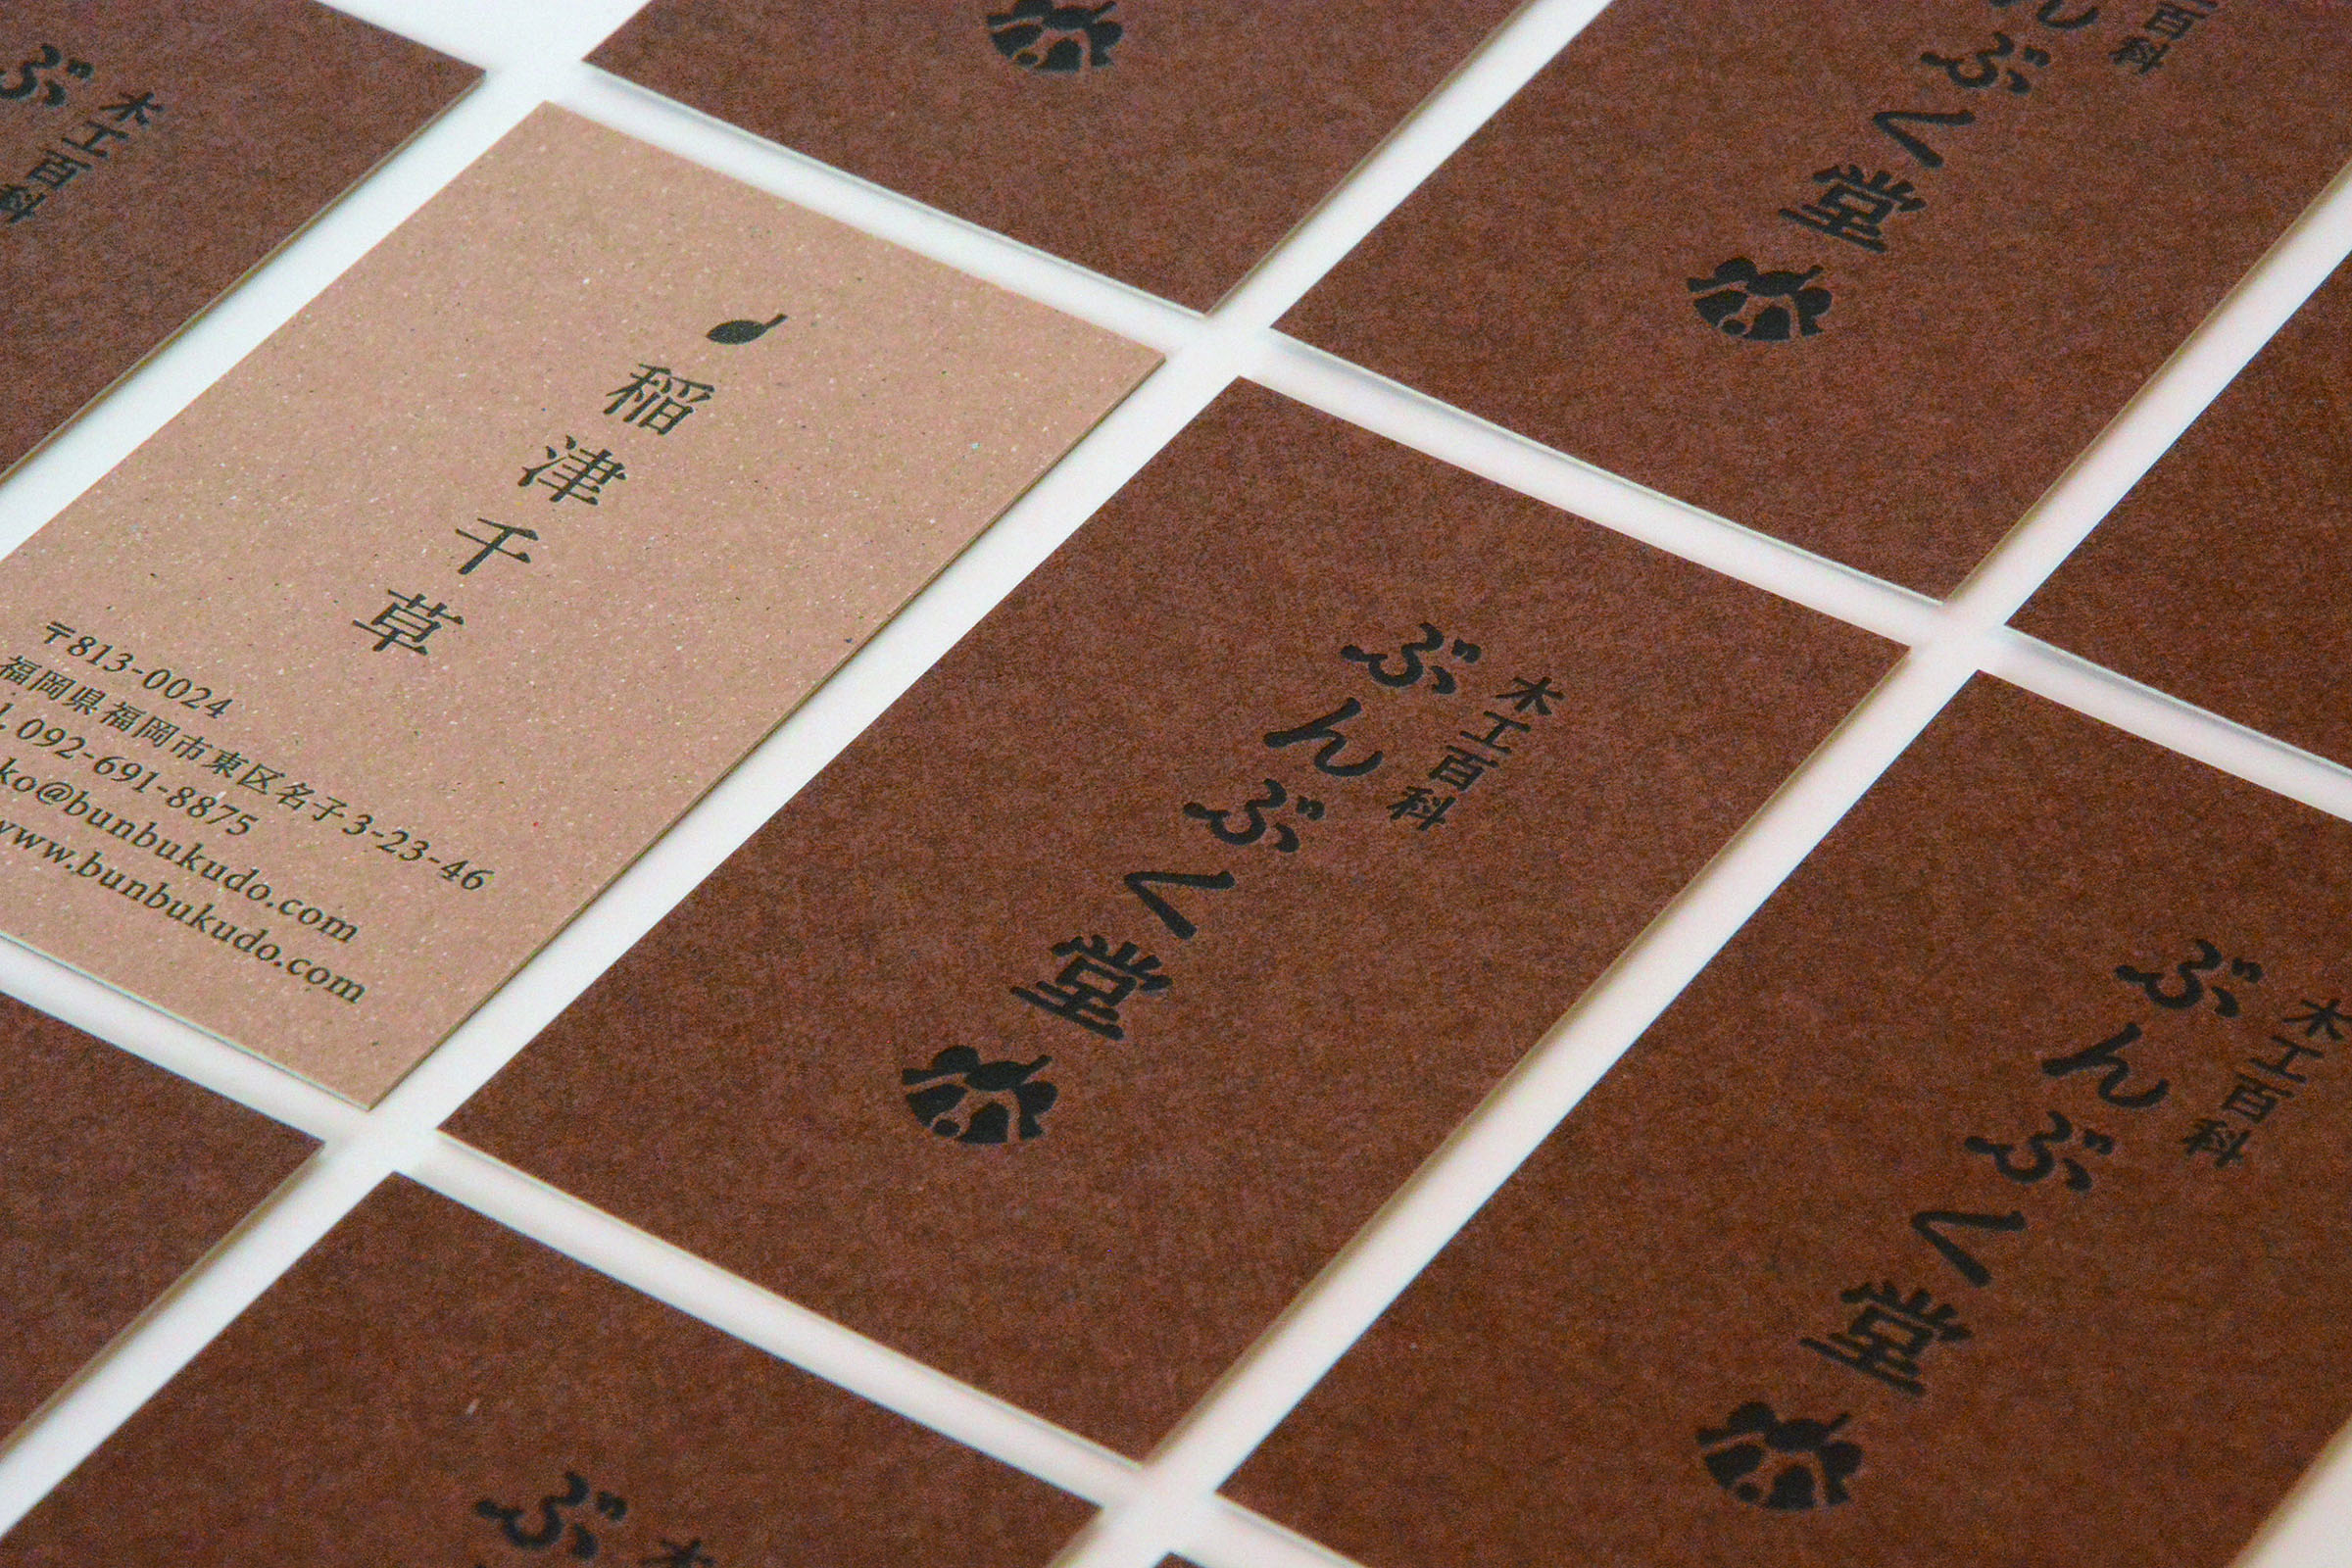 ぶ
木工百科
ぶく堂
百科
稲津千草
〒813-0024
福岡県福岡市東区名子3-23-46
092-691-8875
ko@bunbukudo.com
www.bunbukudo.com
木工百科
ぶんぶく堂
木工百科
ぶんぶく堂
ぶ